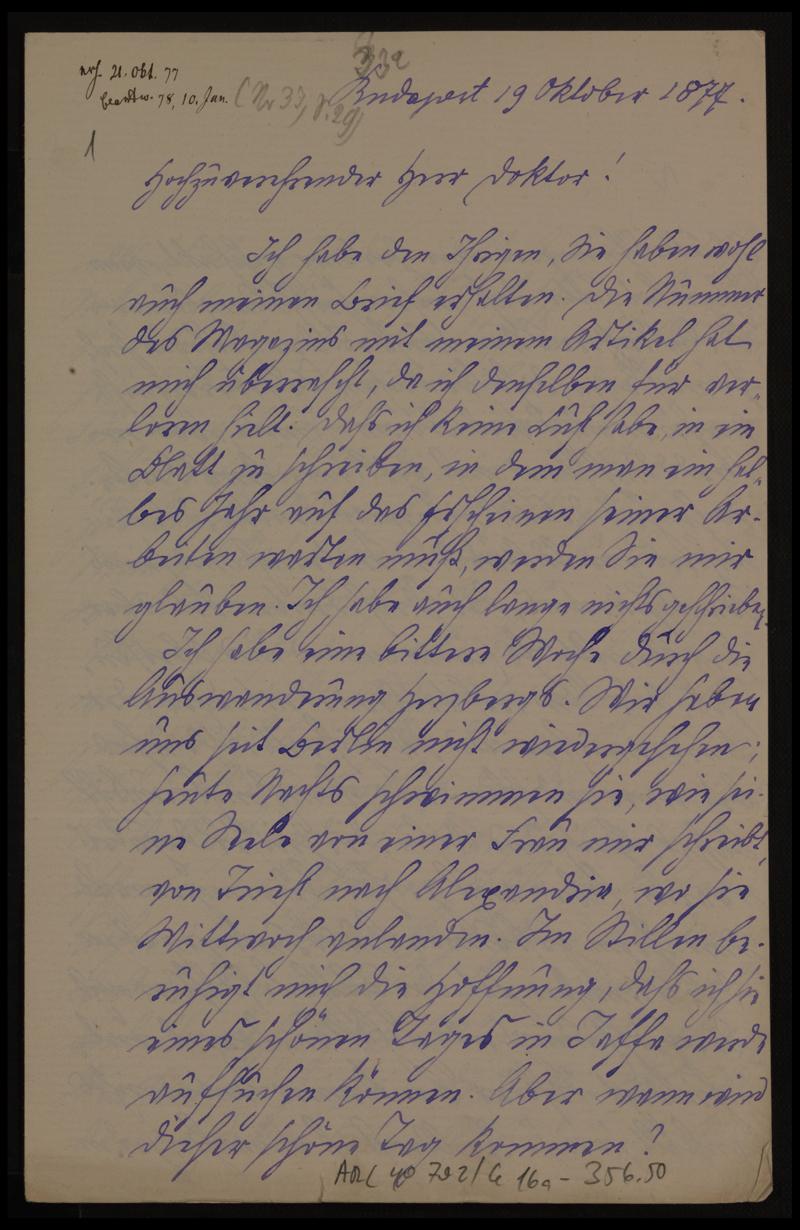 erh. 21. Okt. 77
beantw. 78, 10. Jan.
33a
(Nr 33, S. 29)
1
Budapest 19 Oktober 1877.
Hochzuverehrender Herr Doktor!
Ich habe den Ihrigen, Sie haben wohl
auch meinen Brief erhalten. Die Nummer
des Magazins mit meinem Artikel hat
mich überrascht, da ich denselben für ver-
loren hielt. Dass ich keine Lust habe, in ein
Blatt zu schreiben, in dem man ein hal-
bes Jahr auf das Erscheinen seiner Ar-
beiten warten muß, werden Sie mir
glauben. Ich habe auch lange nichts geschrieben.
Ich habe eine bittere Woche durch die
Auswanderung Herzbergs. Wir haben
uns seit Berlin nicht wiedergesehen;
heute Nachts schwimmen sie, wie sei-
ne Seele von einer Frau mir schreibt,
von Triest nach Alexandria, wo sie
Mittwoch anlanden. Im Stillen be-
ruhigt mich die Hoffnung, dass ich sie
eines schönen Tages in Jaffa werde
aufsuchen können. Aber wann wird
dieser schöne Tag kommen?
ARC 4° 792/G 16a - 356.50